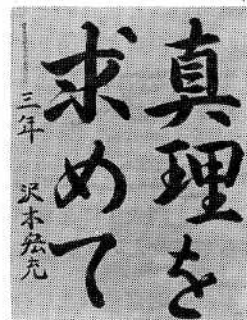 真理を
求めて
三年 沢本宏充